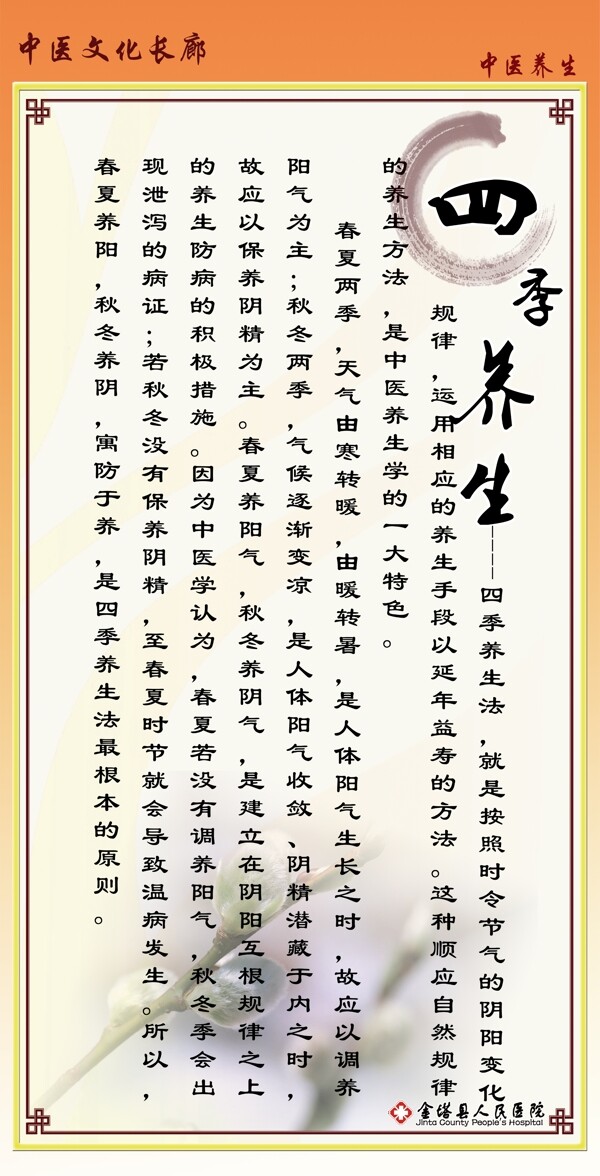 中医文化长廊
中医养生
四季养生
----四季养生法，就是按照时令节气的阴阳变化
规律，运用相应的养生手段以延年益寿的方法。这种顺应自然规律
的养生方法，是中医养生学的一大特色。
春夏两季，天气由寒转暖，由暖转暑，是人体阳气生长之时，故应以调养
阳气为主；秋冬两季，气候逐渐变凉，是人体阳气收敛、阴精潜藏于内之时，
故应以保养阴精为主。春夏养阳气，秋冬养阴气，是建立在阴阳互根规律之上
的养生防病的积极措施。因为中医学认为，春夏若没有调养阳气，秋冬季会出
现泄泻的病证；若秋冬没有保养阴精，至春夏时节就会导致温病发生。所以，
春夏养阳，秋冬养阴，寓防于养，是四季养生法最根本的原则。
金塔县人民医院
Jinta County People's Hospital